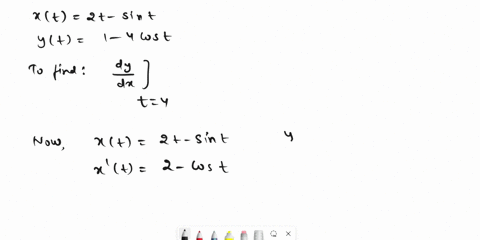 x(t) = 2t - sint
y(t) = 1 - 4 cost
To find: dy/dx ] t=4
Now, x(t) = 2t - sint y
x'(t) = 2 - cost